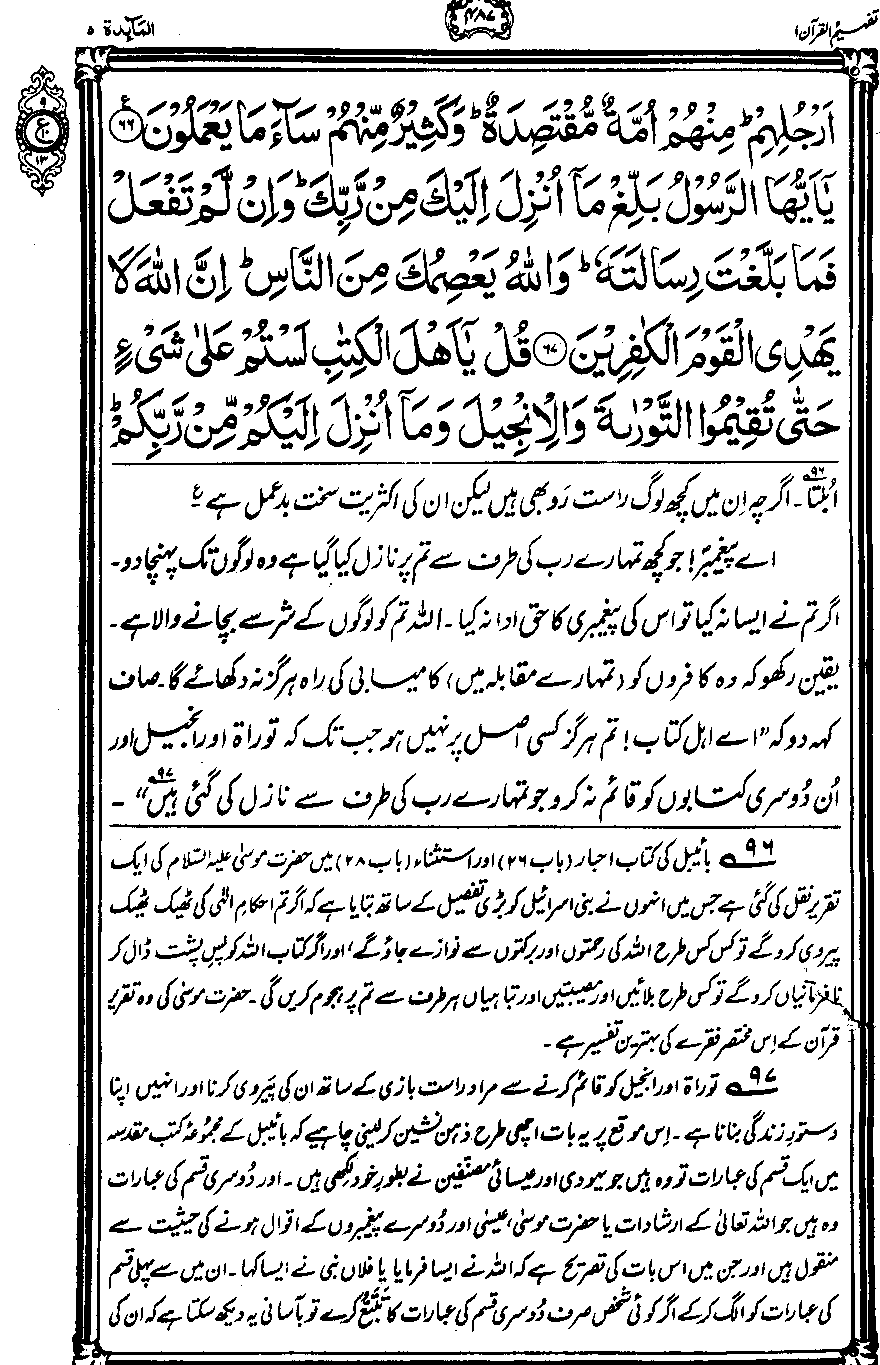 تفہیم القرآن ۱
۴۸۷
المآئدۃ ۵
۹
ع
۱۰
۱۳
اَرْجُلِهِمْ ؕ مِنْهُمْ اُمَّةٌ مُّقْتَصِدَةٌ ؕ وَكَثِيْرٌ مِّنْهُمْ سَآءَ مَا يَعْمَلُوْنَ ﴿۶۶﴾ ع
يٰۤاَيُّهَا الرَّسُوْلُ بَلِّغْ مَاۤ اُنْزِلَ اِلَيْكَ مِنْ رَّبِّكَ ؕ وَاِنْ لَّمْ تَفْعَلْ
فَمَا بَلَّغْتَ رِسَالَتَهٗ ؕ وَاللّٰهُ يَعْصِمُكَ مِنَ النَّاسِ ؕ اِنَّ اللّٰهَ لَا
يَهْدِى الْقَوْمَ الْكٰفِرِيْنَ ﴿۶۷﴾ قُلْ يٰۤاَهْلَ الْكِتٰبِ لَسْتُمْ عَلٰى شَىْءٍ
حَتّٰى تُقِيْمُوا التَّوْرٰىةَ وَالْاِنْجِيْلَ وَمَاۤ اُنْزِلَ اِلَيْكُمْ مِّنْ رَّبِّكُمْ ؕ
اُبلتا ۹۶۔ اگرچہ اِن میں کچھ لوگ راست رَو بھی ہیں لیکن ان کی اکثریت سخت بدعمل ہے ع
اے پیغمبرؐ! جو کچھ تمہارے رب کی طرف سے تم پر نازل کیا گیا ہے وہ لوگوں تک پہنچا دو۔
اگر تم نے ایسا نہ کیا تو اس کی پیغمبری کا حق ادا نہ کیا۔ اللہ تم کو لوگوں کے شر سے بچانے والا ہے۔
یقین رکھو کہ وہ کافروں کو (تمہارے مقابلہ میں) کامیابی کی راہ ہرگز نہ دکھائے گا۔ صاف
کہہ دو کہ ”اے اہل کتاب! تم ہرگز کسی اصل پر نہیں ہو جب تک کہ توراۃ اور انجیل اور
اُن دُوسری کتابوں کو قائم نہ کرو جو تمہارے رب کی طرف سے نازل کی گئی ہیں ۹۷“۔
۹۶ بائیبل کی کتاب احبار (باب ۲۶) اور استثناء (باب ۲۸) میں حضرت موسیٰ علیہ السّلام کی ایک
تقریر نقل کی گئی ہے جس میں انہوں نے بنی اسرائیل کو بڑی تفصیل کے ساتھ بتایا ہے کہ اگر تم احکامِ الٰہی کی ٹھیک ٹھیک
پیروی کرو گے تو کس کس طرح اللہ کی رحمتوں اور برکتوں سے نوازے جاؤ گے، اور اگر کتاب اللہ کو پسِ پشت ڈال کر
نافرمانیاں کرو گے تو کس طرح بلائیں اور مصیبتیں اور تباہیاں ہر طرف سے تم پر ہجوم کریں گی۔ حضرت موسیٰ کی وہ تقریر
قرآن کے اِس مختصر فقرے کی بہترین تفسیر ہے۔
۹۷ توراۃ اور انجیل کو قائم کرنے سے مراد راست بازی کے ساتھ ان کی پیروی کرنا اور انہیں اپنا
دستورِ زندگی بنانا ہے۔ اِس موقع پر یہ بات اچھی طرح ذہن نشین کر لینی چاہیے کہ بائیبل کے مجموعۂ کتبِ مقدسہ
میں ایک قسم کی عبارات تو وہ ہیں جو یہودی اور عیسائی مصنّفین نے بطورِ خود لکھی ہیں۔ اور دُوسری قسم کی عبارات
وہ ہیں جو اللہ تعالیٰ کے ارشادات یا حضرت موسیٰ، عیسیٰ اور دُوسرے پیغمبروں کے اقوال ہونے کی حیثیت سے
منقول ہیں اور جن میں اس بات کی تصریح ہے کہ اللہ نے ایسا فرمایا یا فلاں نبی نے ایسا کہا۔ ان میں سے پہلی قسم
کی عبارات کو الگ کر کے اگر کوئی شخص صرف دُوسری قسم کی عبارات کا تَتَبُّع کرے تو بآسانی یہ دیکھ سکتا ہے کہ ان کی